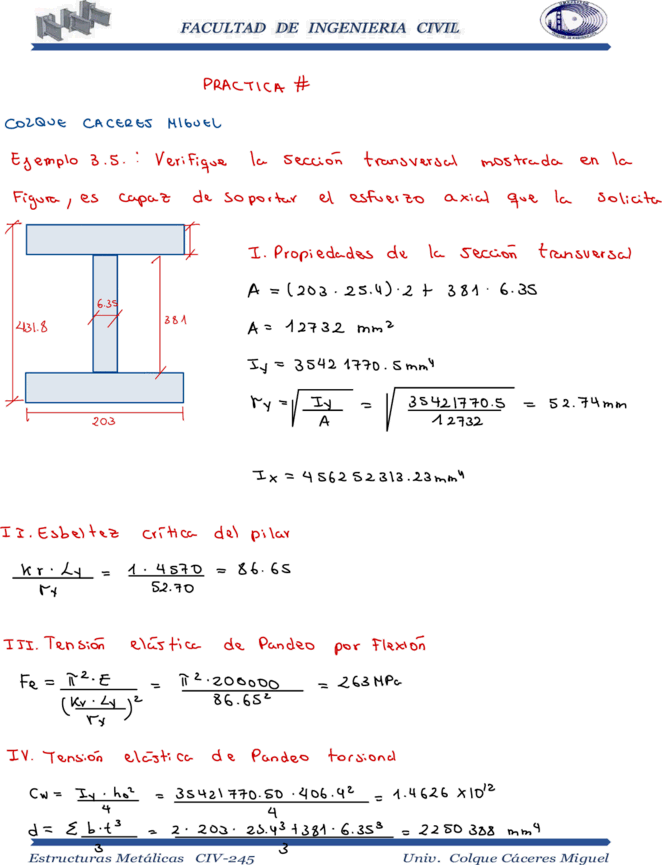 FACULTAD DE INGENIERIA CIVIL
PRACTICA #
COLQUE CACERES MIGUEL
Ejemplo 3.5. : Verifique la sección transversal mostrada en la
Figura, es capaz de soportar el esfuerzo axial que la solicita
431.8
6.35
381
203
I. Propiedades de la sección transversal
A = (203 · 25.4) · 2 + 381 · 6.35
A = 12732 mm²
Iy = 35421770.5 mm⁴
ry = √(Iy / A) = √(35421770.5 / 12732) = 52.74 mm
Ix = 456252313.23 mm⁴
II. Esbeltez crítica del pilar
Kr · Ly / ry = 1 · 4570 / 52.70 = 86.65
III. Tensión elástica de Pandeo por Flexión
Fe = π² · E / (Kv · Ly / ry)² = π² · 200000 / 86.65² = 263 MPa
IV. Tensión elástica de Pandeo torsional
Cw = Iy · ho² / 4 = 35421770.50 · 406.4² / 4 = 1.4626 x10¹²
d = Σ b·t³ / 3 = 2 · 203 · 25.4³ + 381 · 6.35³ / 3 = 2250388 mm⁴
Estructuras Metálicas CIV-245
Univ. Colque Cáceres Miguel